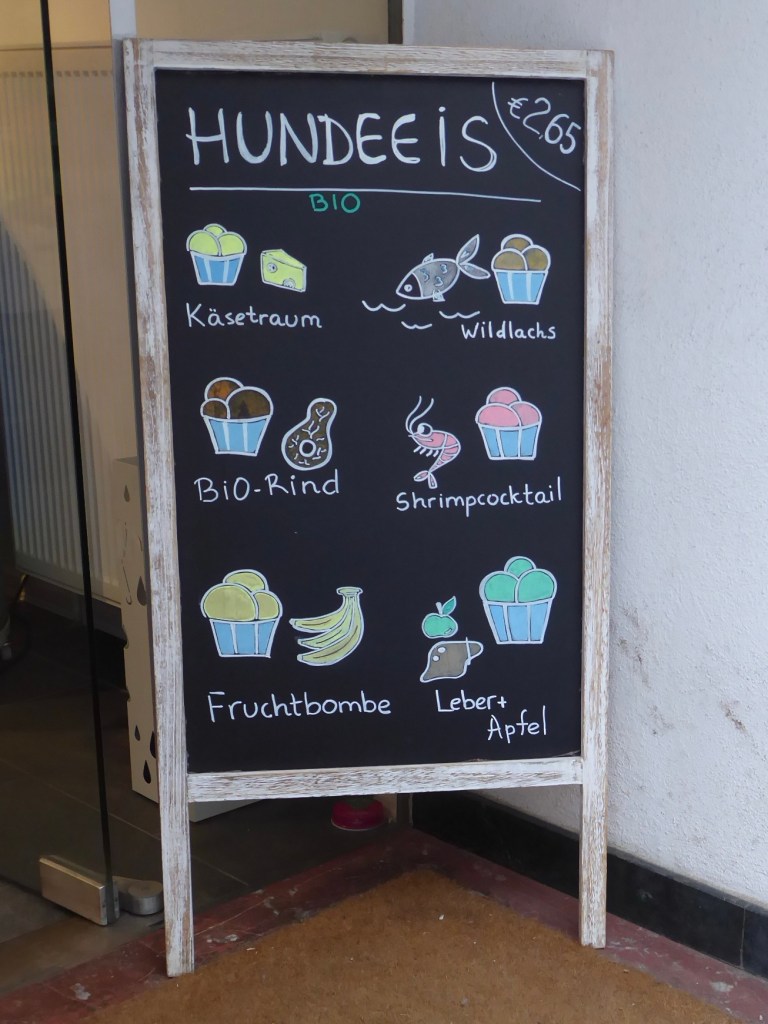 HUNDEEIS
€2,65
BIO
Käsetraum
Wildlachs
BiO-Rind
Shrimpcocktail
Fruchtbombe
Leber+
Apfel